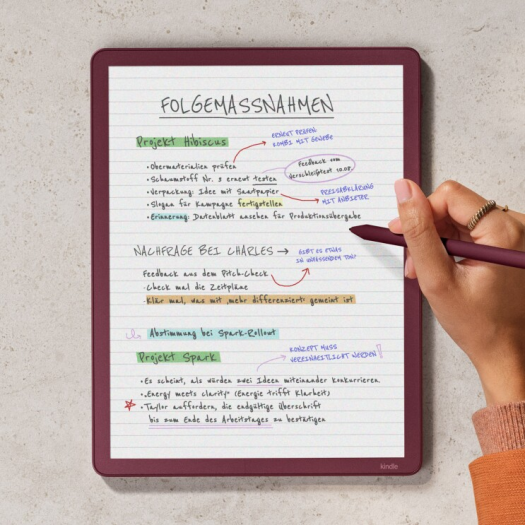 FOLGEMASSNAHMEN
Projekt Hibiscus
ERNEUT PRÜFEN
KOMBI MIT GEWEBE
• Obermaterialien prüfen
• Schaumstoff Nr. 3 erneut testen
Feedback vom
Verschleißtest 10.08.
• Verpackung: Idee mit Saatpapier
PREISABKLÄRUNG
MIT ANBIETER
• Slogan für Kampagne fertigstellen
• Erinnerung: Datenblatt ansehen für Produktionsübergabe
NACHFRAGE BEI CHARLES →
GIBT ES ETWAS
IN UNSEREM TON?
Feedback aus dem Pitch-Check
- Check mal die Zeitpläne
- Klär mal, was mit „mehr differenziert“ gemeint ist
Abstimmung bei Spark-Rollout
Projekt Spark
KONZEPT MUSS
VEREINHEITLICHT WERDEN!
• Es scheint, als würden zwei Ideen miteinander konkurrieren.
• „Energy meets clarity“ (Energie trifft Klarheit)
• Taylor auffordern, die endgültige Überschrift
bis zum Ende des Arbeitstages zu bestätigen
kindle